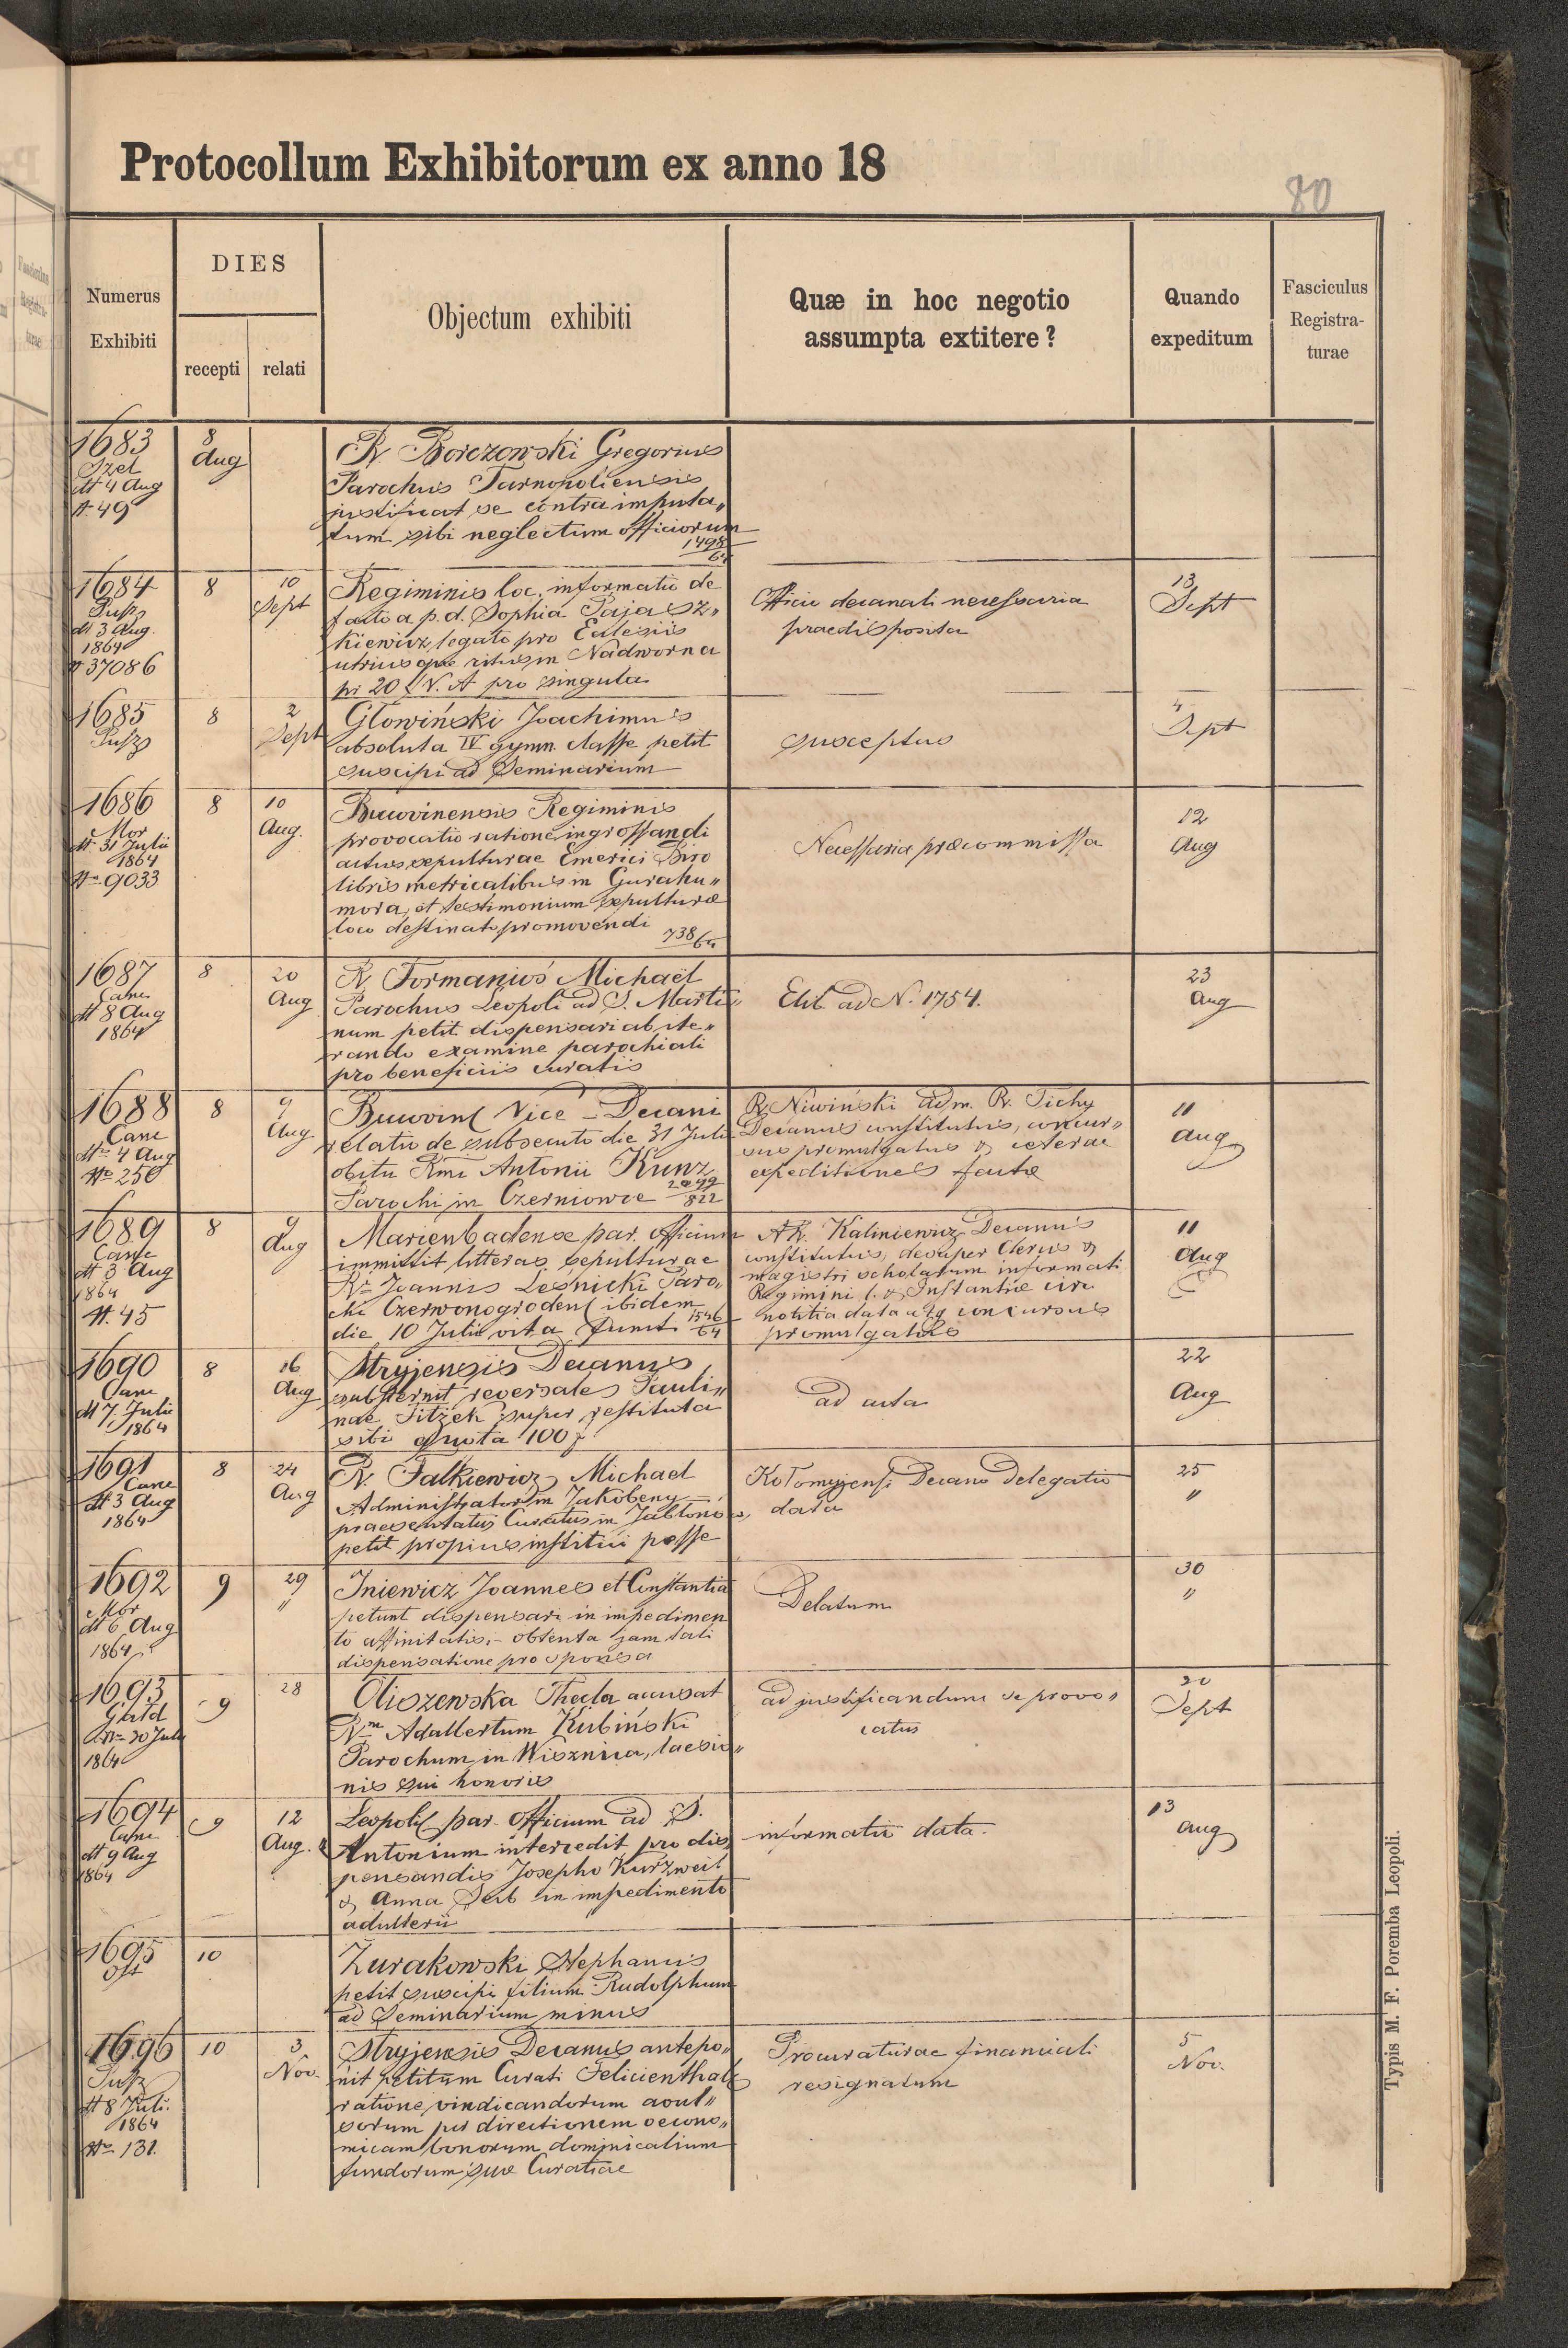 Protocollum Exhibitorum ex anno 18
80
Numerus
Exhibiti
DIES
recepti
relati
Objectum exhibiti
Quæ in hoc negotio
assumpta extitere?
Quando
expeditum
Fasciculus
Registra-
turae
1683
dtt 4 Aug
N. 49
8
Aug
R. Borczowski Gregorius
Parochus Tarnopoliensis
justificat se contra imputa„
tum sibi neglectum officiorum
1498
64
1684
dt 3 Aug.
1864
N 37086
8
10
Sept
Regiminis loc. informatio de
facto a p. d. Sophia Pajasz„
kiewicz legato pro Eclesiis
utriusque ritus in Nadworna
pr 20 f V. A pro singula
Officio decanali necessaria
praedisposita
13
Sept
1685
8
2
Sept
Głowiński Joachimus
absoluta IV gymn. classe petit
suscipi ad Seminarium
susceptus
4
Sept
1686
Mor
dtt 31 Julii
1864
No 9033
8
10
Aug.
Bucovinensis Regiminis
provocatio ratione ingrossandi
actus sepulturae Emerici Biro
libris metricalibus in Gurahu„
mora, et testimonium sepulturæ
loco destinato promovendi
738/64
Necessaria præcommissa
12
Aug
1687
Canc
dtt 8 Aug
1864
8
20
Aug
R. Formanios Michaël
Parochus Leopoli ad S. Marti„
num petit dispensari ab ite„
rando examine parochiali
pro beneficiis curatis
Exh. ad N. 1754.
23
Aug
1688
Canc
dtto 4 Aug
No 250
8
9
Aug
Bucovin Vice-Decani
relatio de subsecuto die 31 Julii
obitu Rmi Antonii Kunz
Parochi in Czerniowce
822
R. Niwiński adm. R. Tichy
Decanus constitutus, concur„
sus promulgatus & ceterae
expeditiones factæ
11
Aug
1689
Canc
dtt 3 Aug
1864
N. 45
8
9
Aug
Marienbadense par. officium
immittit litteras sepulturae
Ri Joannis Leśnicki Paro„
chi Czerwonogroden ibidem
die 10 Julii vita functi 1546/64
AR. Kaliniewicz Decanus
constitutus, desuper Clerus &
magistri scholarum informati
Regimini l. & Instantiæ circ
notitia data atq concursus
promulgatus
11
Aug
1690
Canc
dtt 7. Julii
1864
8
16
Aug
Stryjensis Decanus
substernit reversales Pauli„
nae Titzek super restituta
sibi quota 100 f
ad acta
22
Aug
1691
Canc
dtt 3 Aug
1864
8
24
Aug
R. Falkiewicz Michael
Administrator in Jakobeny –
praesentatus Curatus in Jabłonów,
petit propius institui posse
Kołomyjensi Decano Delegatio
data
25
"
1692
Mor
dtt 6 Aug
1864
9
29
"
Iniewicz Joannes et Constantia
petunt dispensari in impedimen
to affinitatis,- obtenta jam tali
dispensatione pro sponsa
Delatum
30
"
1693
30 Julii
1864
9
28
Oliszewska Thecla accusat
Rm Adalbertum Kubiński
Parochum in Wisznica, laesio„
nis sui honoris
ad justificandum se provo„
catus
20
Sept
1694
Canc
dtt 9 Aug
1864
9
12
Aug.
Leopol par. officium ad S.
Antonium intercedit pro dis„
pensandis Josepho Kurzweil
& Anna Serb in impedimento
adulterii
informatio data.
13
Aug
1695
10
Żurakowski Stephanus
petit suscipi filium Rudolphum
ad Seminarium minus
1696
dtt 8 Juli.
1864
No 131.
10
3
Nov.
Stryjensis Decanus antepo„
nit petitum Curati Felicienthal
ratione vindicandorum avul„
sorum per directionem oecono„
micam bonorum dominicalium
fundorum suæ Curatiae
Procuraturae financiali
resignatum
5
Nov.
Typis M. F. Poremba Leopoli.